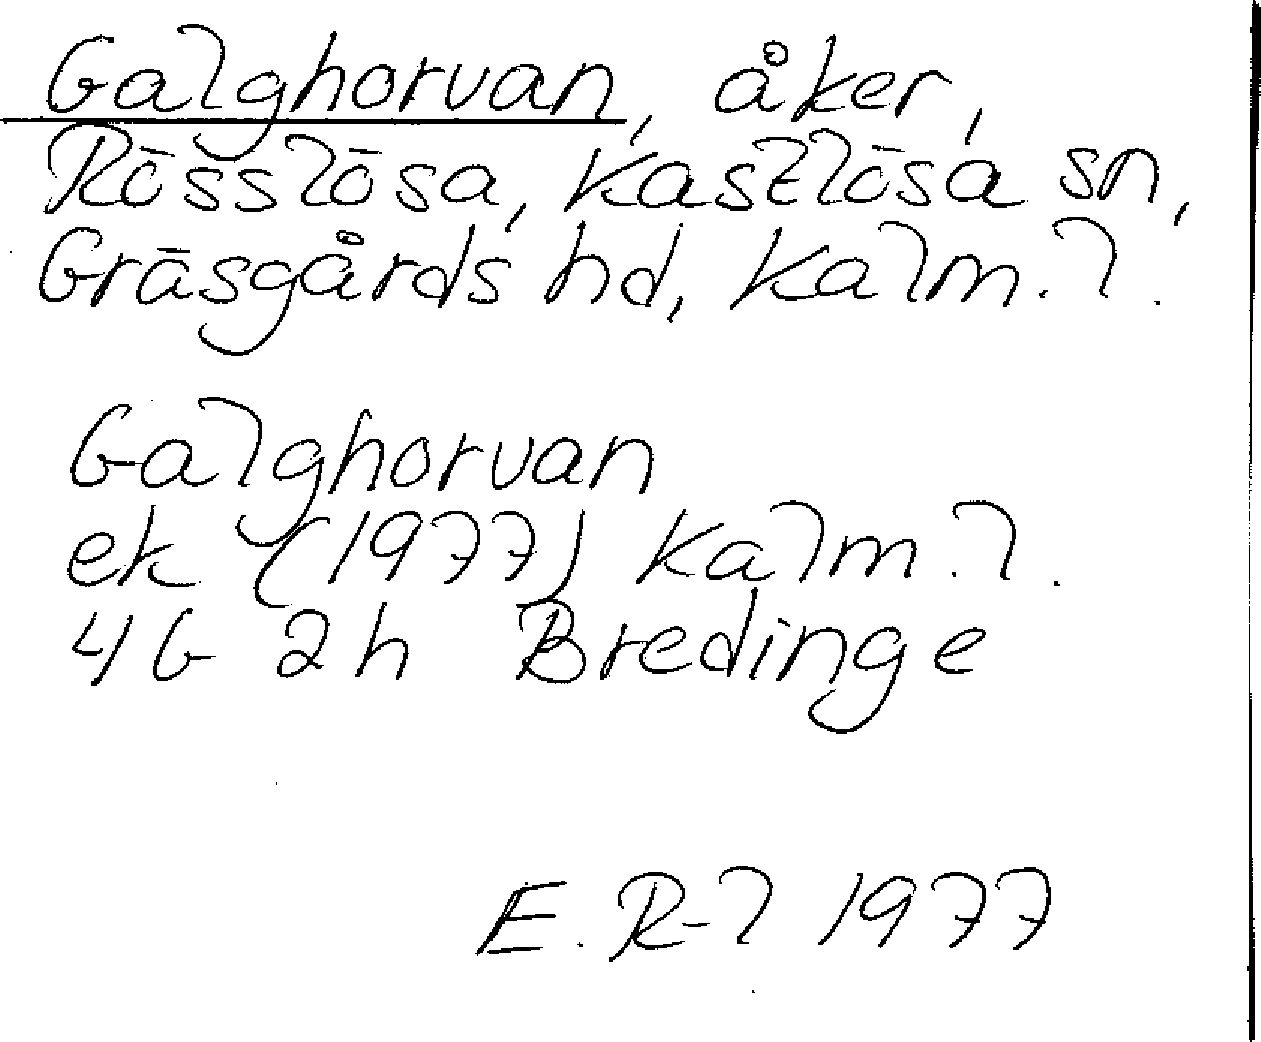 Galghorvan, åker,
Rösslösa, Kastlösa sn,
Gräsgårds hd, Kalm. l.
Galghorvan
ek (1977) Kalm. l.
4G 2h Bredinge
E. R-l 1977